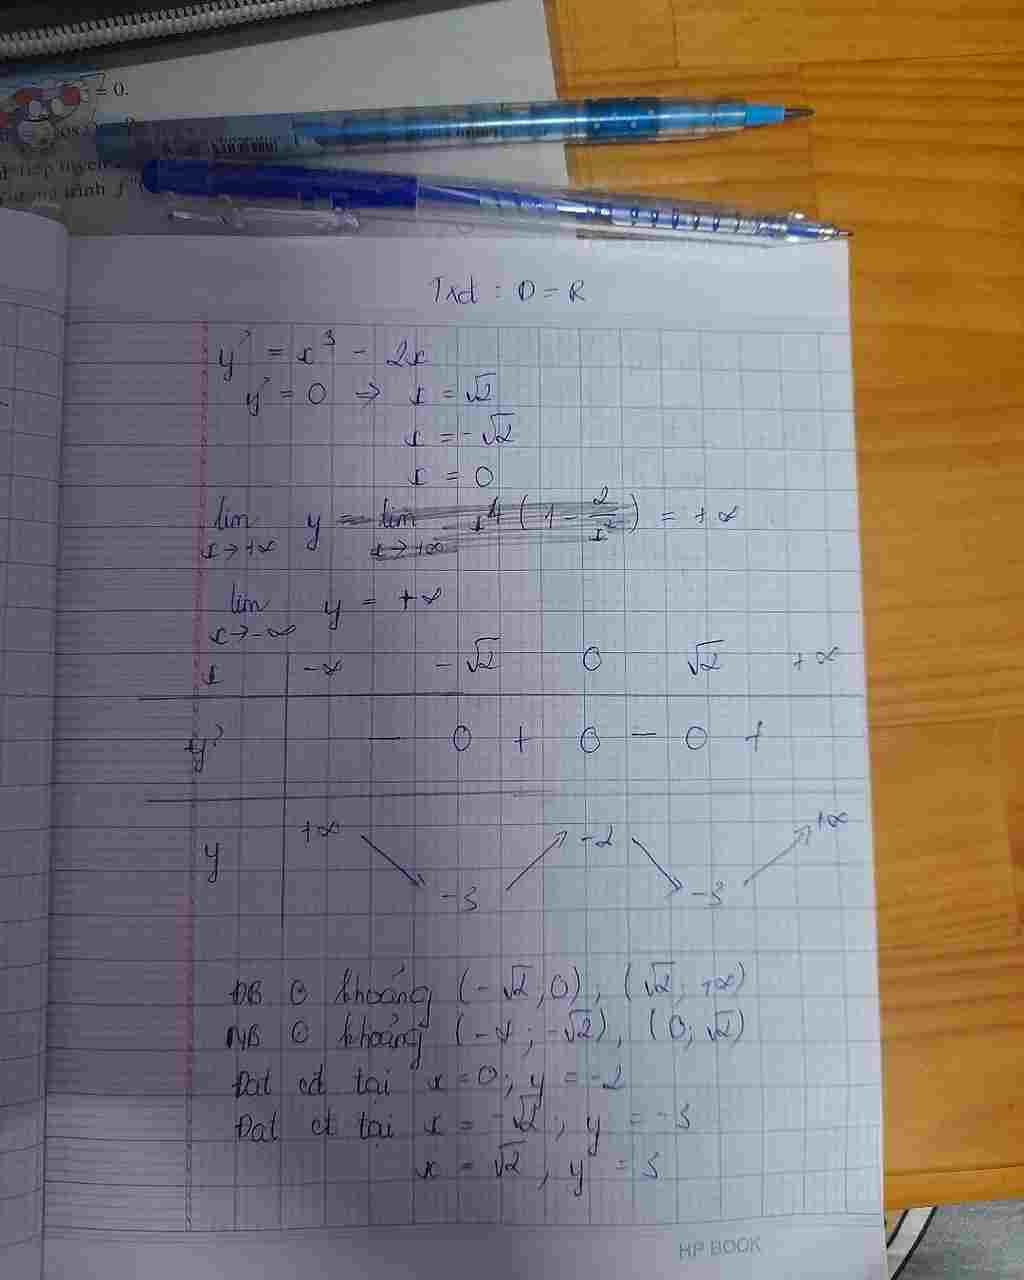 = 0.
trình f
Txd : D = R
y' = x³ - 2x
y' = 0 ⇒ x = √2
x = -√2
x = 0
lim x→+∞ y = lim x→+∞ x⁴ (1 - 2/x²) = +∞
lim x→-∞ y = +∞
x -∞ -√2 0 √2 +∞
y' - 0 + 0 - 0 +
y +∞ -3 -2 -3 +∞
ĐB ở khoảng (-√2; 0), (√2; +∞)
NB ở khoảng (-∞; -√2), (0; √2)
Đạt cđ tại x = 0; y = -2
Đạt ct tại x = -√2, y = -3
x = √2, y = 3
HP BOOK